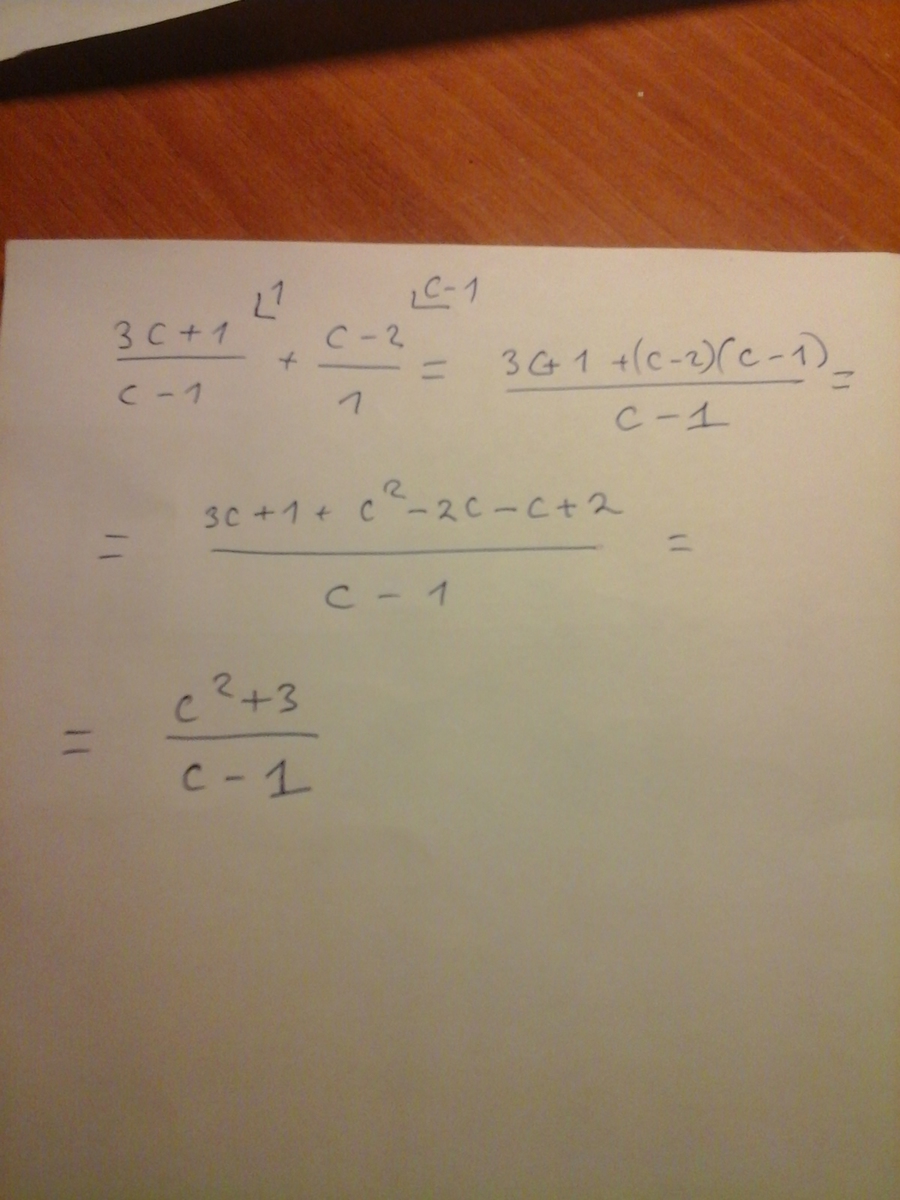 (3c+1)/(c-1) ⌊1 + (c-2)/1 ⌊c-1 = (3c+1+(c-2)(c-1))/(c-1) =
= (3c+1+c²-2c-c+2)/(c-1) =
= (c²+3)/(c-1)